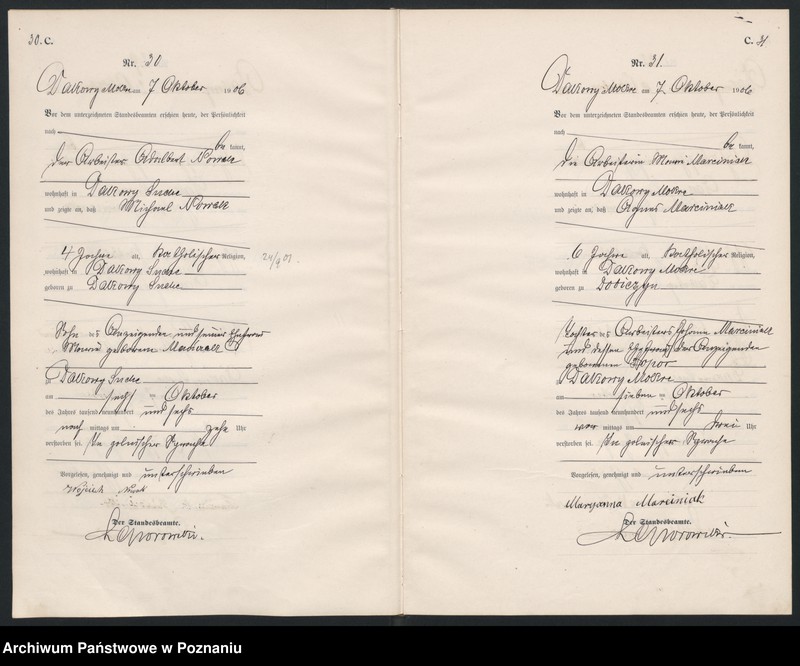 30. C.
Nr. 30
Dakowy Mokre am 7 Oktober 1906
Vor dem unterzeichneten Standesbeamten erschien heute, der Persönlichkeit
nach
be kannt,
der Arbeiter Adalbert Nowak
wohnhaft in Dakowy Suche
und zeigte an, daß Michael Nowak
4 Jahre alt, katholischer Religion,
wohnhaft in Dakowy Suche
geboren zu Dakowy Suche
Sohn des Anzeigenden und seiner Ehefrau
geborene
in Dakowy Suche
am sechs ten Oktober
des Jahres tausend neunhundert und sechs
nach mittags um Uhr
verstorben sei. In polnischer Sprache
Vorgelesen, genehmigt und unterschrieben
Wojciech
Der Standesbeamte.
C. 31
Nr. 31.
Dakowy Mokre am 7 Oktober 1906
Vor dem unterzeichneten Standesbeamten erschien heute, der Persönlichkeit
nach
be kannt,
die Arbeiterin Marciniak
wohnhaft in Dakowy Mokre
und zeigte an, daß Agnes Marciniak
6 Jahre alt, katholischer Religion,
wohnhaft in Dakowy Mokre
geboren zu
Tochter des Arbeiters Johann Marciniak
und dessen Ehefrau der Anzeigenden
geborenen
in Dakowy Mokre
am sieben ten Oktober
des Jahres tausend neunhundert und sechs
vor mittags um drei Uhr
verstorben sei. In polnischer Sprache
Vorgelesen, genehmigt und unterschrieben
Maryanna Marciniak
Der Standesbeamte.
Archiwum Państwowe w Poznaniu